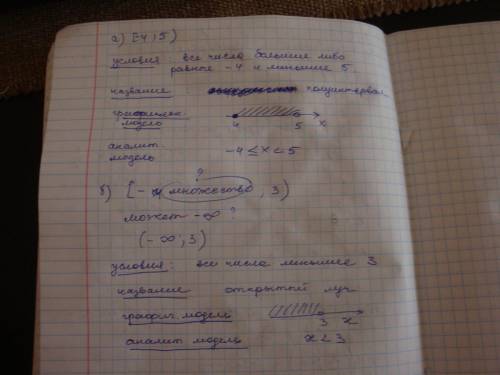 а) [-4 ; 5)
условия все числа большие либо
равные -4 и меньшие 5.
название полуинтервал
графическ.
модель
4 5 x
аналит.
модель -4 ≤ x < 5
?
б) [- множество , 3)
может -∞ ?
(-∞ ; 3)
условия: все числа меньшие 3
название открытый луч
график. модель
3 x
аналит модель x < 3